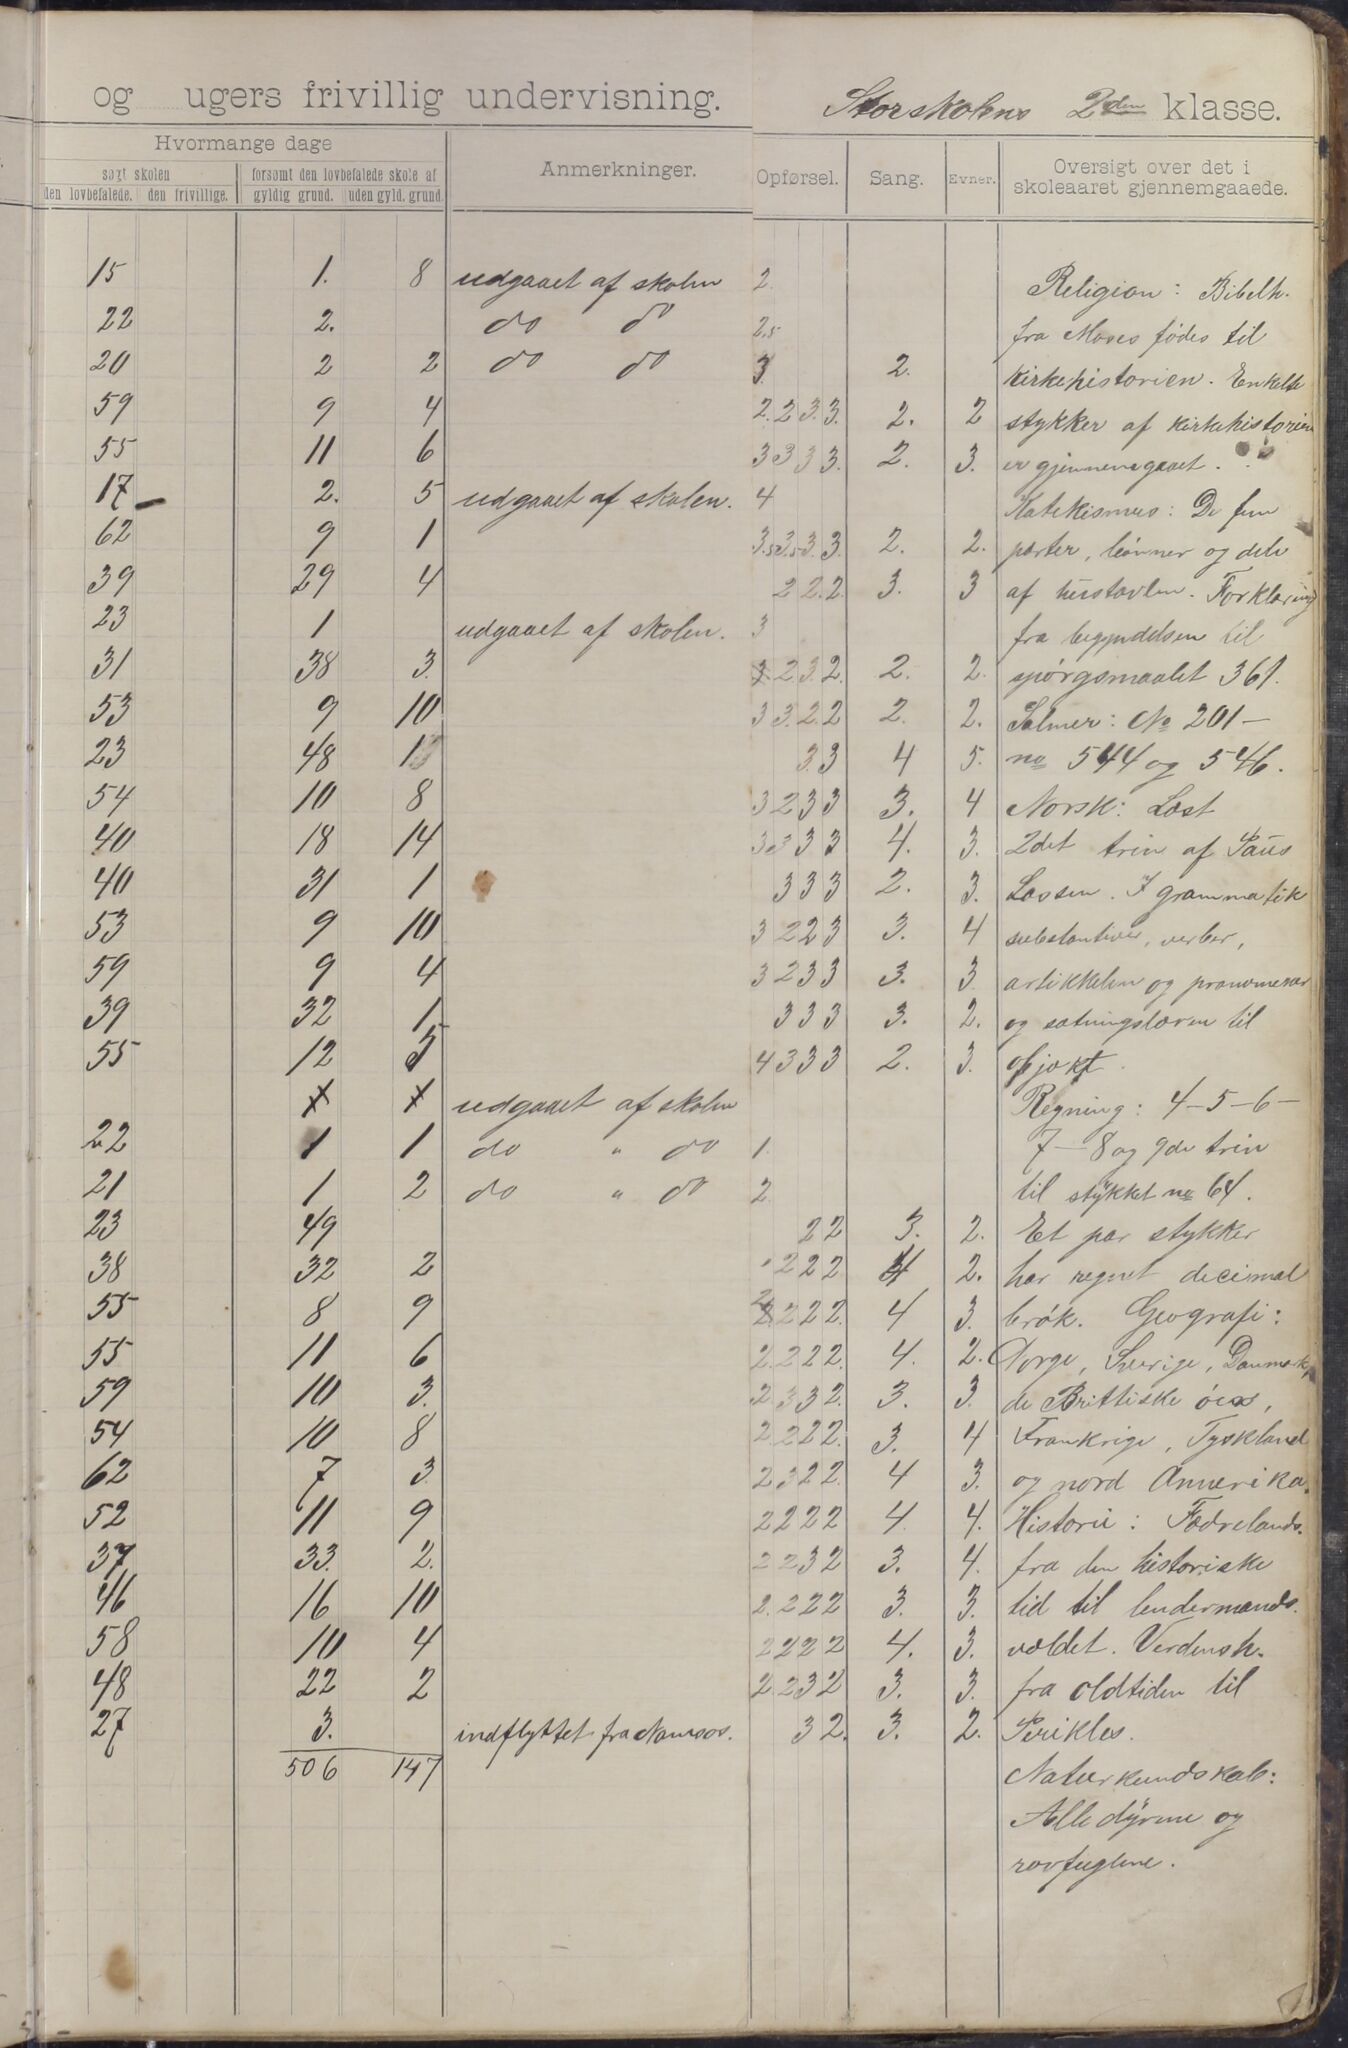 og ugers frivillig undervisning. Storskolens 2den klasse.
Hvormange dage
søgt skolen forsømt den lovbefalede skole af
den lovbefalede. den frivillige. gyldig grund. uden gyld. grund.
Anmerkninger. Opførsel. Sang. Evner. Oversigt over det i
skoleaaret gjennemgaaede.
15 1. 8 udgaaet af skolen 2. Religion: Bibelh.
22 2. do do 2,5 fra Moses fødes til
20 2 2 do do 3 2. kirkehistorien. Enkelte
59 9 4 2. 2 3. 3. 2. 2 stykker af kirkehistorien
55 11 6 3 3 3 3. 2. 3. er gjennemgaaet.
17 2. 5 udgaaet af skolen. 4 Katekismus: De fem
62 9 1 3,5 3,5 3. 3. 2. 2. parter, bønner og dele
39 29 4 2 2. 2. 3. 3 af hustavlen. Forklaring
23 1 udgaaet af skolen. 3 fra begyndelsen til
31 38 3. 2 3. 2. 2. 2. spørgsmaalet 361.
53 9 10 3 3. 2. 2 2. 2. Salmer: No 201 –
23 48 1 3. 3 4 5. no 544 og 546.
54 10 8 3 2 3 3 3. 4 Norsk: Læst
40 18 14 3 3 3 3 4. 3. 2det trin af Paus
40 31 1 3 3 3 2. 3. Lassen. I grammatik
53 9 10 3 2 2 3 3. 4 substantiver, verber,
59 9 4 3 2 3 3 3. 3 artikkelen og pronomener
39 32 1 3 3 3 3. 2. og sætningslæren til
55 12 5 4 3 3 3 2. 3. objekt.
udgaaet af skolen Regning: 4–5–6–
22 1 1 do " do 1. 7–8 og 9de trin
21 1 2 do " do 2. til stykket no 64.
23 49 2 2 3. 2. Et par stykker
38 32 2 2 2 2 4 2. har regnet decimal
55 8 9 2 2 2 2. 4 3. brøk. Geografi:
55 11 6 2. 2 2 2. 4. 2. Norge, Sverige, Danmark,
59 10 3. 2. 3 3 2. 3. 3. de Brittiske øer,
54 10 8 2. 2 2 2. 3. 4 Frankrige, Tyskland
62 7 3. 2 3 2 2 4 3. og nord Amerika.
52 11 9 2 2 2 2 4 4. Historie: Fædrelands.
37 33. 2. 2 2 3 2 3. 4. fra den historiske
46 16 10 2. 2 2 2 3. 3. tid til lendermands.
58 10 4 2 2 2 2 4. 3. vældet. Verdensh.
48 22 2 2 2 3 2 3. 3. fra oldtiden til
27 3. indflyttet fra Namsos. 3 2. 3. 2. Perikles.
506 147 Naturkundskab:
Alle dyrene og
rovfuglene.